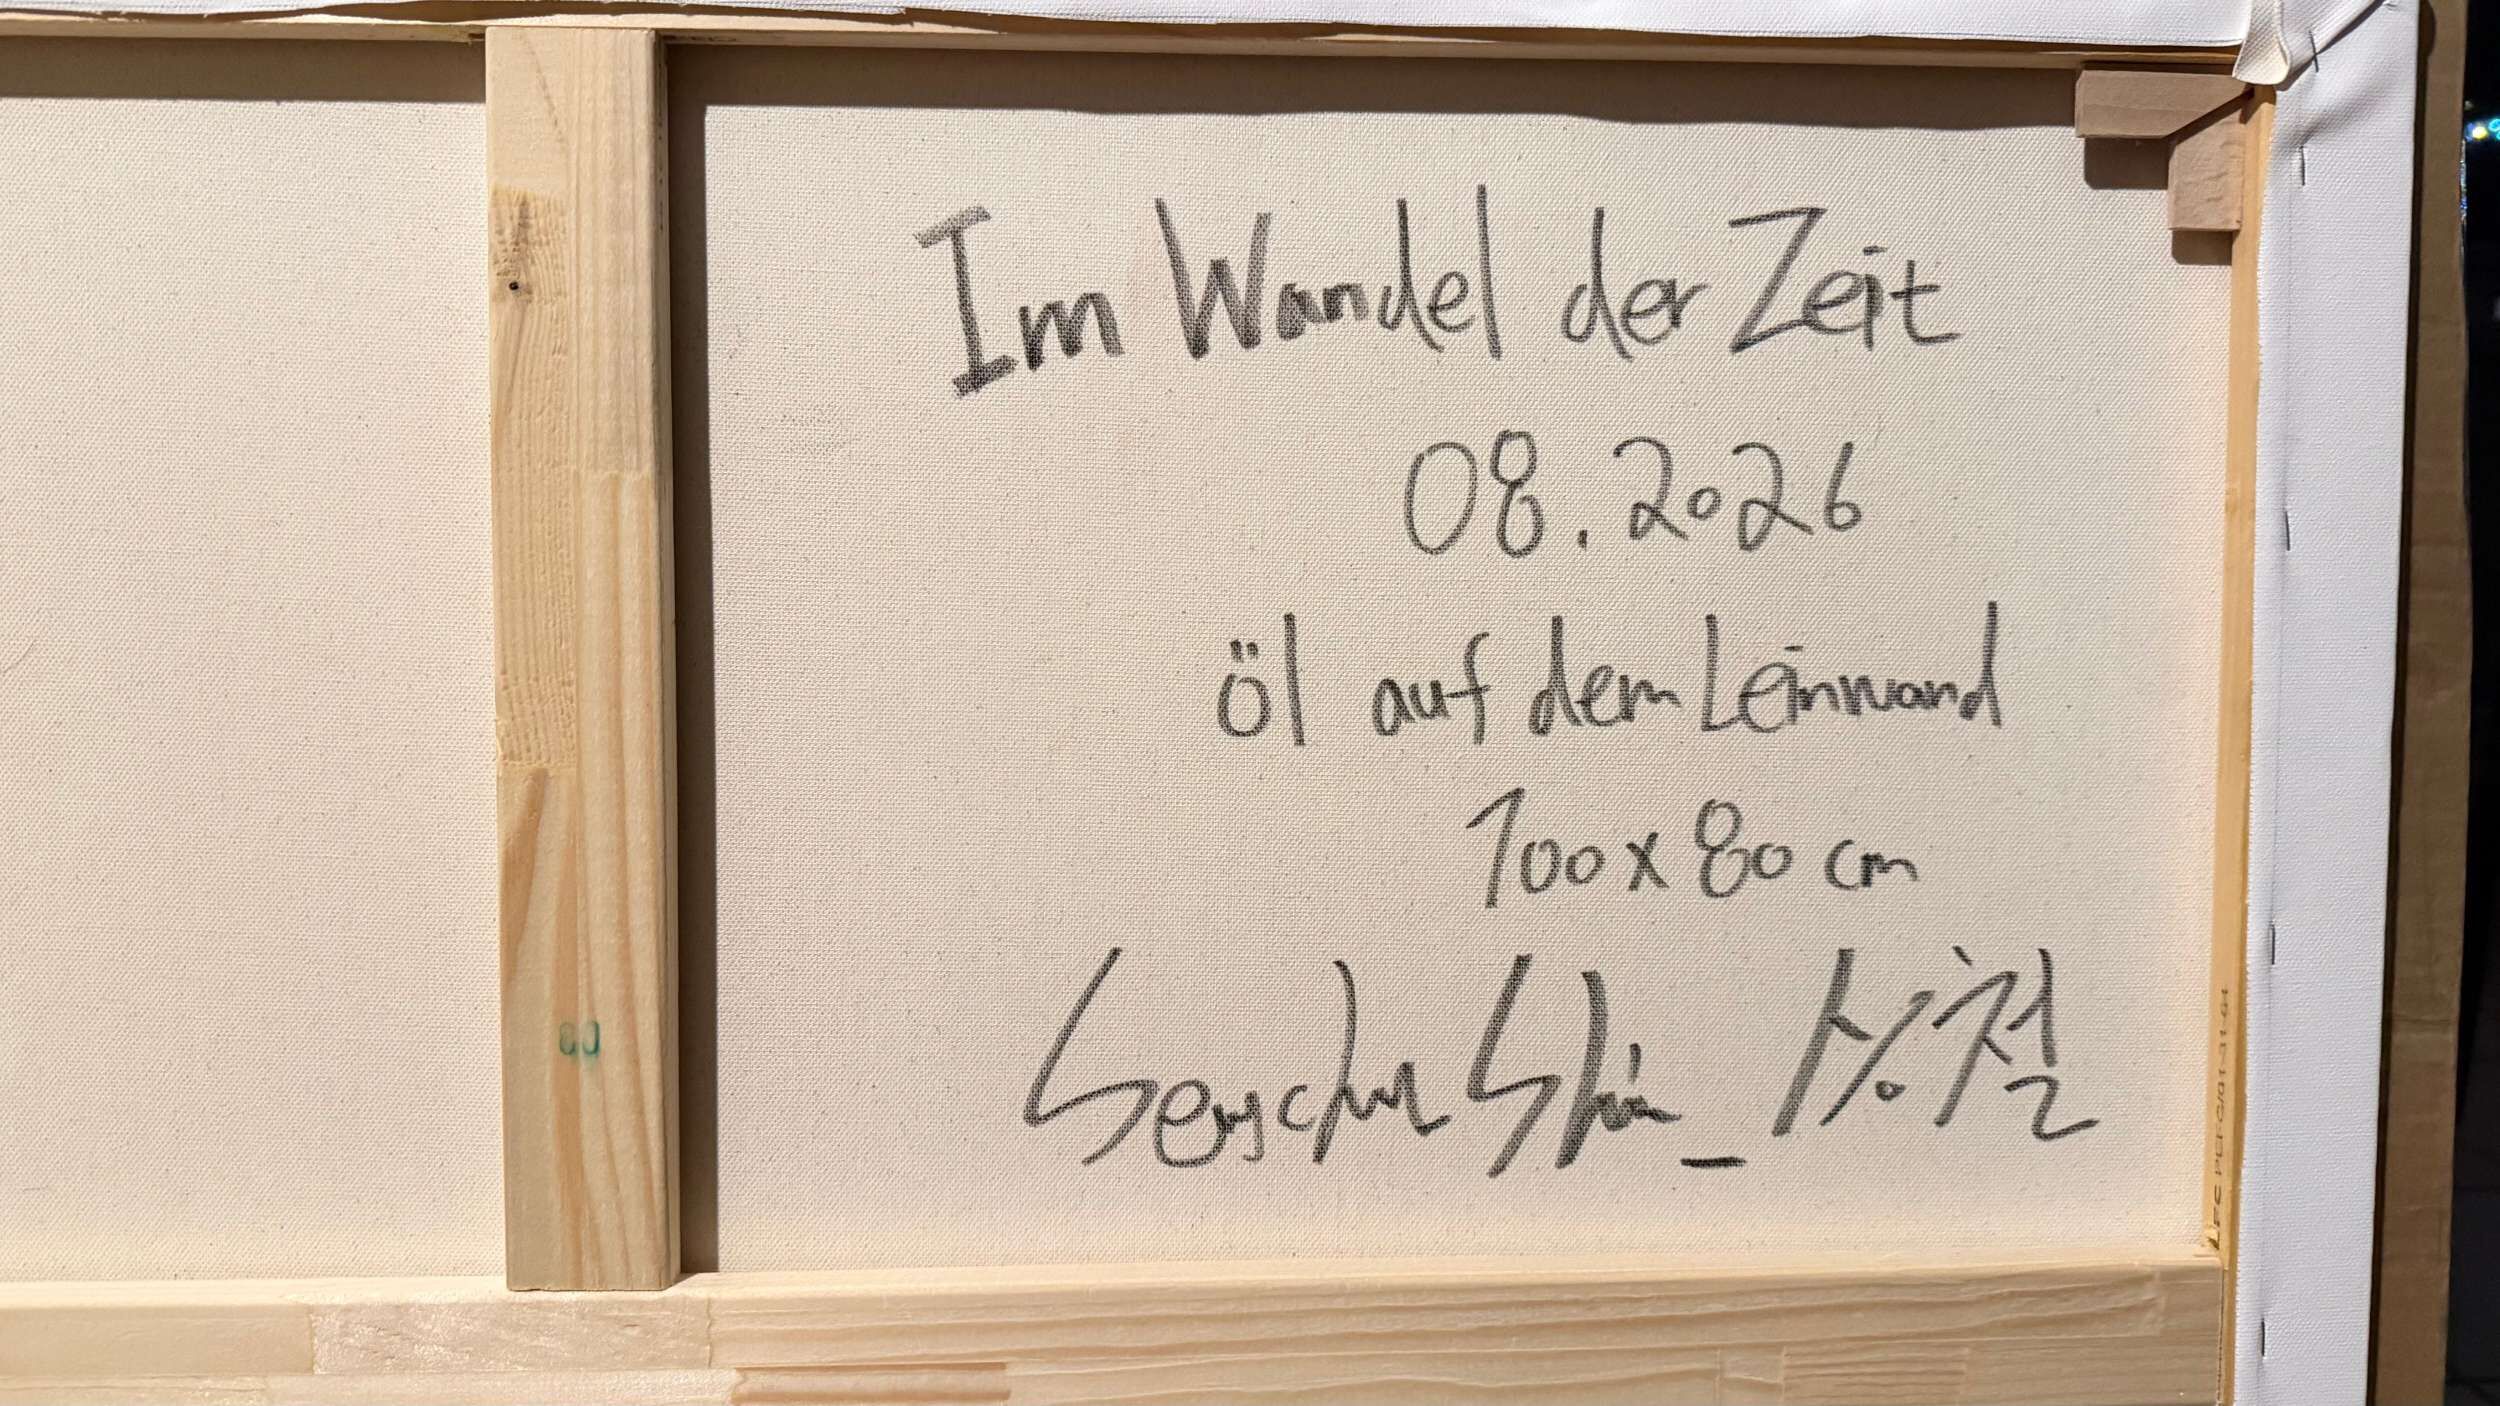 Im Wandel der Zeit
08.2026
öl auf dem Leinwand
100 x 80 cm
Shin_
00